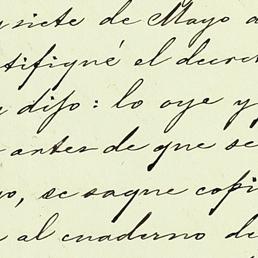 siete de Mayo
tifiqué el decret
dijo: lo oye y
antes de que se
, se saque copi
al cuaderno de